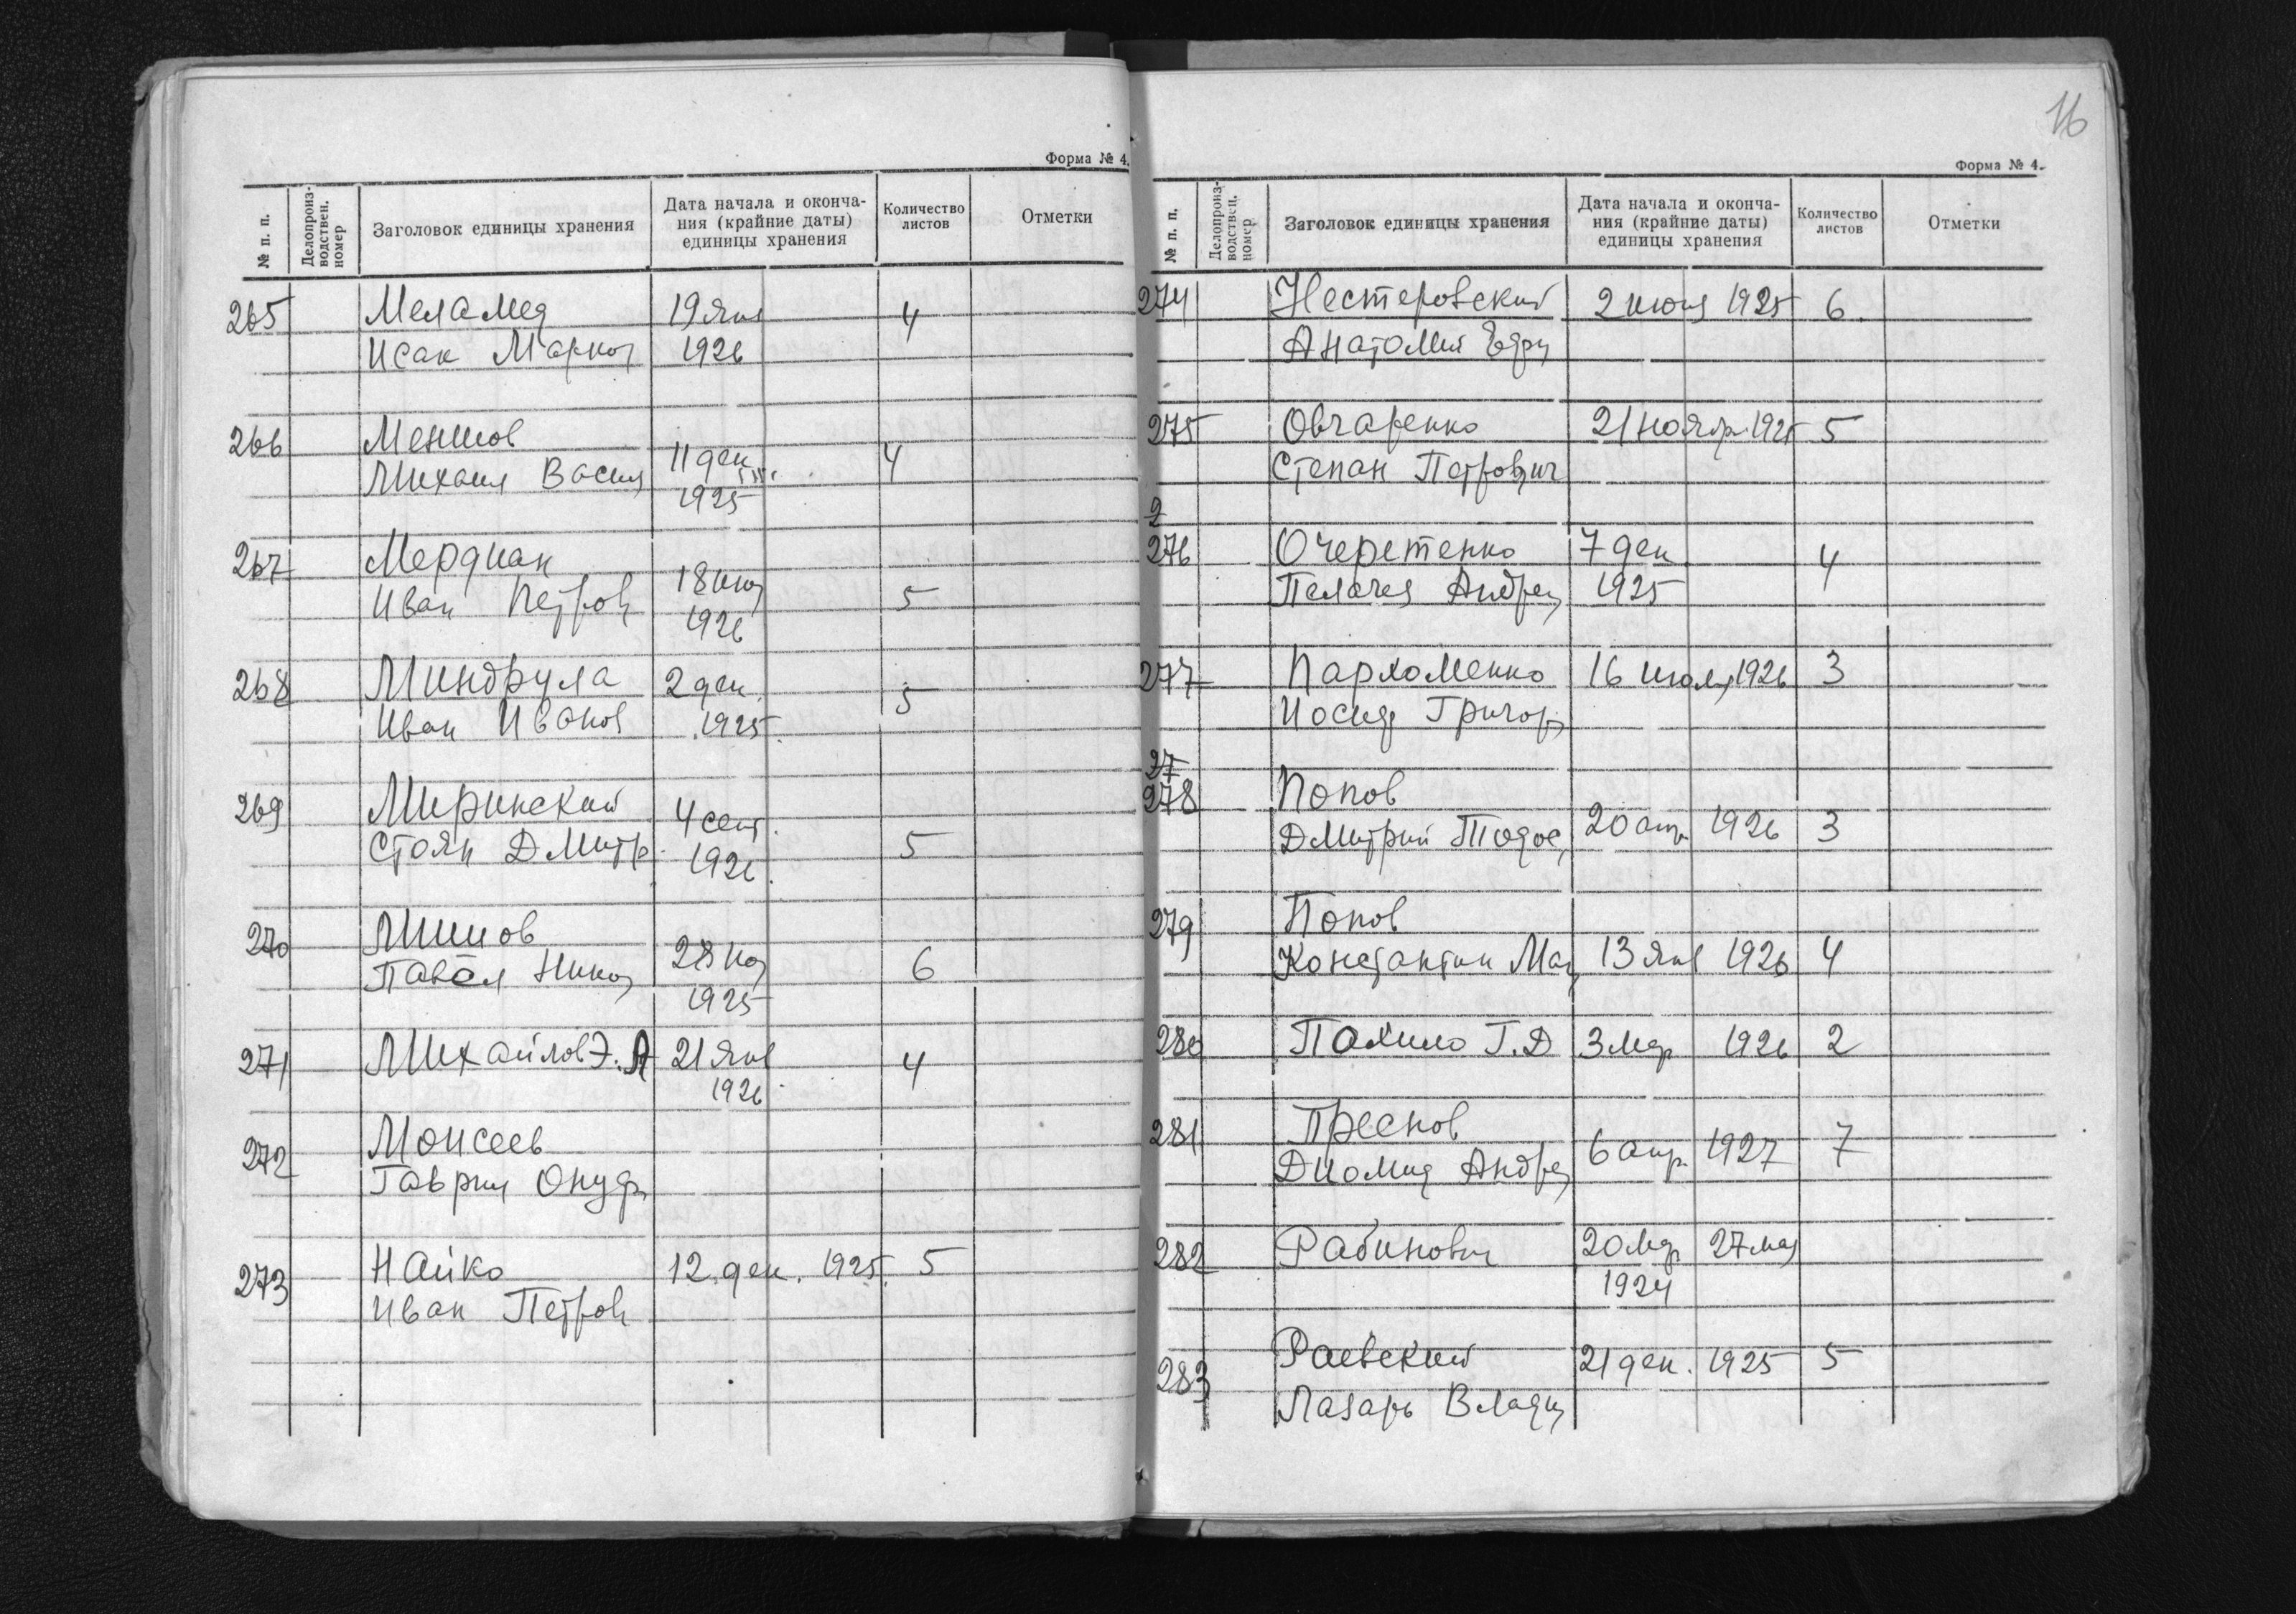 Форма № 4.
№ п. п.
Делопроиз-
водствен.
номер
Заголовок единицы хранения
Дата начала и оконча-
ния (крайние даты)
единицы хранения
Количество
листов
Отметки
265 Меламед 19 Янв 4
Исак Марков 1926
266 Меншов
Михаил Васил 11 дек 4
1925
267 Мердиан
Иван Петров 18 5
1926
268 Миндрула 2 дек 5
Иван Иванов 1925
269 Миринский 4 сент.
Стоян Дмитр. 5
1926
270
Павел Никол 28 6
1925
271 Михайлов Э. А 21 Янв 4
1926
272 Моисеев
Гаврил Онуф
273 Найко 12 дек. 1925 5
Иван Петров
16
Форма № 4.
№ п. п.
Делопроиз-
водствен.
номер
Заголовок единицы хранения
Дата начала и оконча-
ния (крайние даты)
единицы хранения
Количество
листов
Отметки
274 Нестеровский 2 июня 1925 6
Анатолий
275 Овчаренко 21 ноябр. 1925 5
Степан Петрович
2
276 Очеретенко 7 дек 4
Пелагея Андре 1925
277 Пархоменко 16 июля 1926 3
Иосиф Григор
27
278 Попов
Дмитрий Тодос 20 апр 1926 3
279 Попов
Константин 13 Янв 1926 4
280 Похило Г. Д 3 мар 1926 2
281 Преснов
Диомид Андре 6 апр. 1927 7
282 Рабинович 20 мар 27 мая
1924
283 Раевский 21 дек. 1925 5
Лазарь Влади